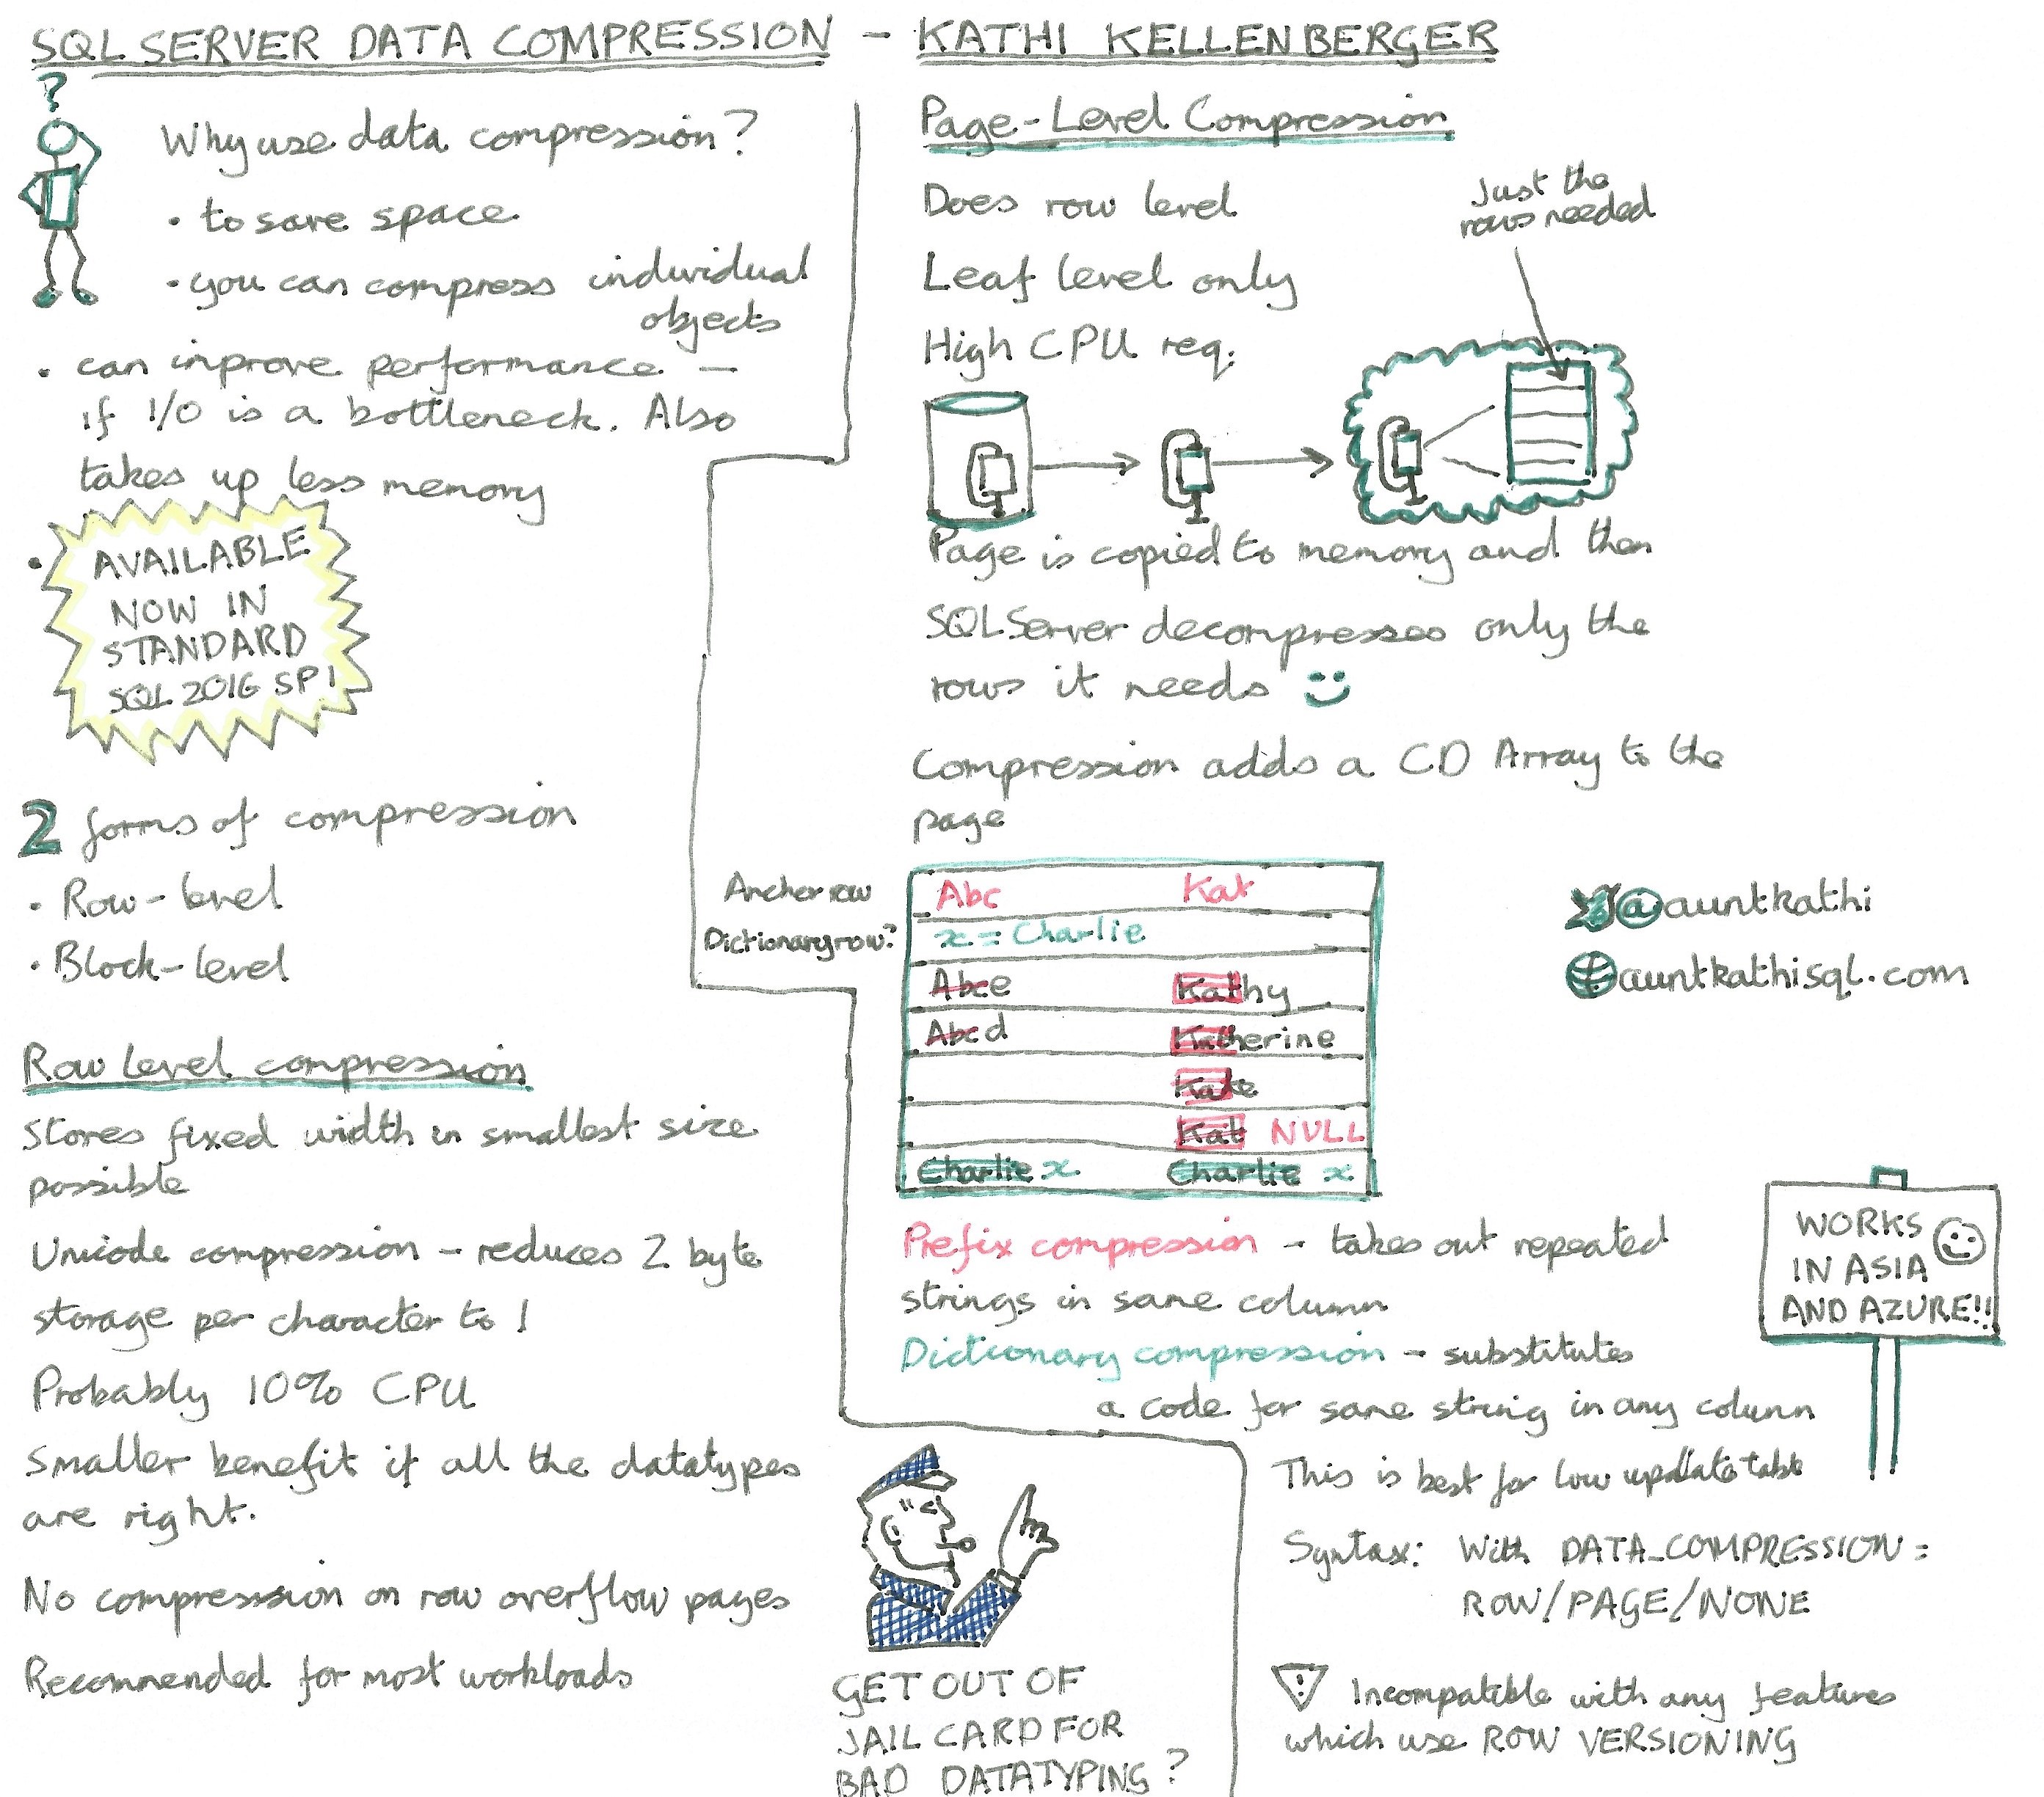 SQL SERVER DATA COMPRESSION - KATHI KELLENBERGER
?
Why use data compression?
• to save space
• you can compress individual
objects
• can improve performance —
if I/O is a bottleneck. Also
takes up less memory
• AVAILABLE
NOW IN
STANDARD
SQL 2016 SP1
2 forms of compression
• Row-level
• Block-level
Row Level compression
Stores fixed width in smallest size
possible
Unicode compression - reduces 2 byte
storage per character to 1
Probably 10% CPU
Smaller benefit if all the datatypes
are right.
No compression on row overflow pages
Recommended for most workloads
GET OUT OF
JAIL CARD FOR
BAD DATATYPING?
Page-Level Compression
Does row level
Leaf level only
High CPU req.
Just the
rows needed
Page is copied to memory and then
SQL Server decompresses only the
rows it needs
Compression adds a CD Array to the
page
Anchor row Abc Kat
Dictionary row? x = Charlie
Abce Kathy
Abcd Katherine
Kate
Kat NULL
Charlie x Charlie x
@auntkathi
auntkathisql.com
Prefix compression - takes out repeated
strings in same column
Dictionary compression - substitutes
a code for same string in any column
This is best for low update table
Syntax: With DATA_COMPRESSION =
ROW/PAGE/NONE
! Incompatible with any features
which use ROW VERSIONING
WORKS
IN ASIA
AND AZURE!!